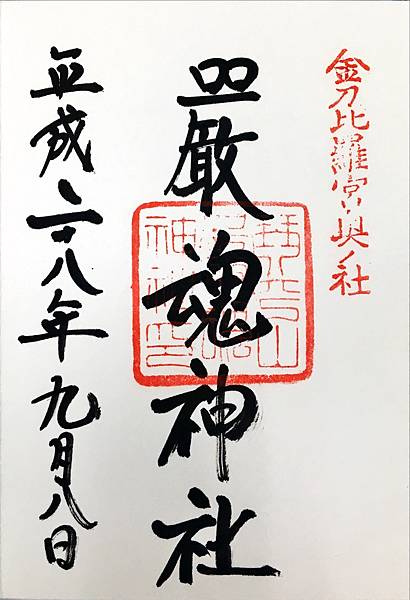 金刀比羅宮・奥ノ社
嚴魂神社
平成二十八年九月八日